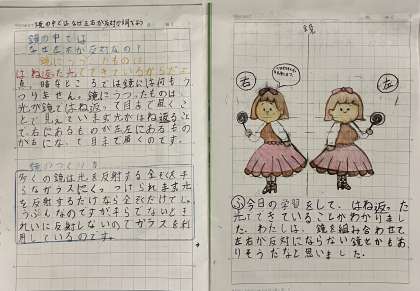 鏡の中ではなぜ左右が反対か調べよう
鏡の中では
なぜ左右が反対なの！
鏡にうつったものは
はね返った光でできているからだよ
真っ暗なところでは鏡には何もう
つりません。鏡にうつったものは、
光が鏡ではね返って目まで届くこ
とで見えています光がはね返ること
で、右にあるものが左左にあるもの
が右になって目まで届くのです。
鏡のつくり方
多くの鏡は光を反射する金ぞくを平
らなガラスにくっつけられます光
を反射するだけなら金ぞくだけでじ
ゅうぶんなのですが平らでないとき
れいに反射しないのでガラスを利
用しているのです。
鏡
右
左
ふ今日の学習をして、はね返った
光でできていることがわかりまし
た。わたしは、鏡を組み合わせて
左右が反対にならない鏡とかもあ
りそうだなと思いました。